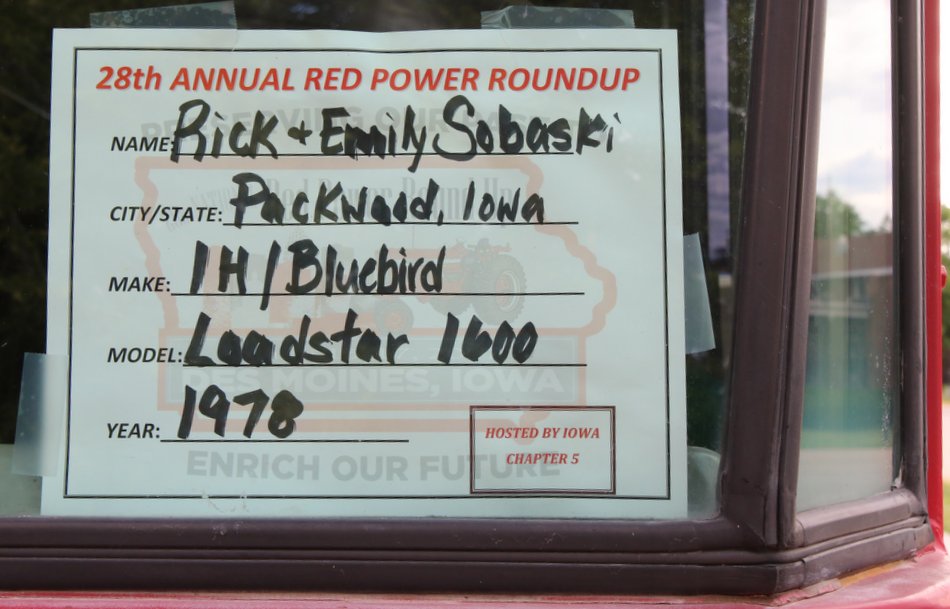 28th ANNUAL RED POWER ROUNDUP
PRESERVING OUR PAST
NAME: Rick + Emily Sobaski
Red Power Round Up
CITY/STATE: Packwood, Iowa
MAKE: IH/Bluebird
MODEL: Loadstar 1600
DES MOINES, IOWA
YEAR: 1978
HOSTED BY IOWA
CHAPTER 5
ENRICH OUR FUTURE